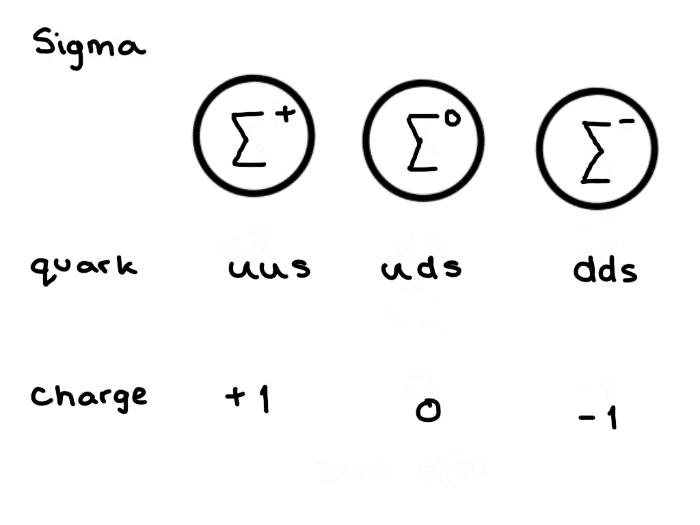 Sigma
Σ⁺ Σ⁰ Σ⁻
quark uus uds dds
charge +1 0 -1